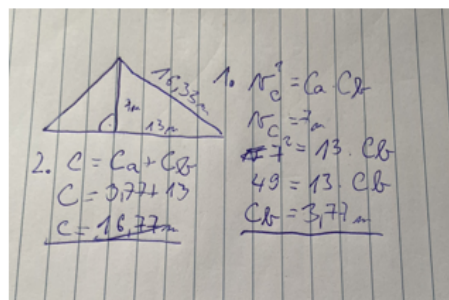 16,33m
7m
13m
1. v_c² = Ca · Cb
v_c = 7m
7² = 13 · Cb
49 = 13 · Cb
Cb = 3,77 m
2. C = Ca + Cb
C = 3,77 + 13
C = 16,77m